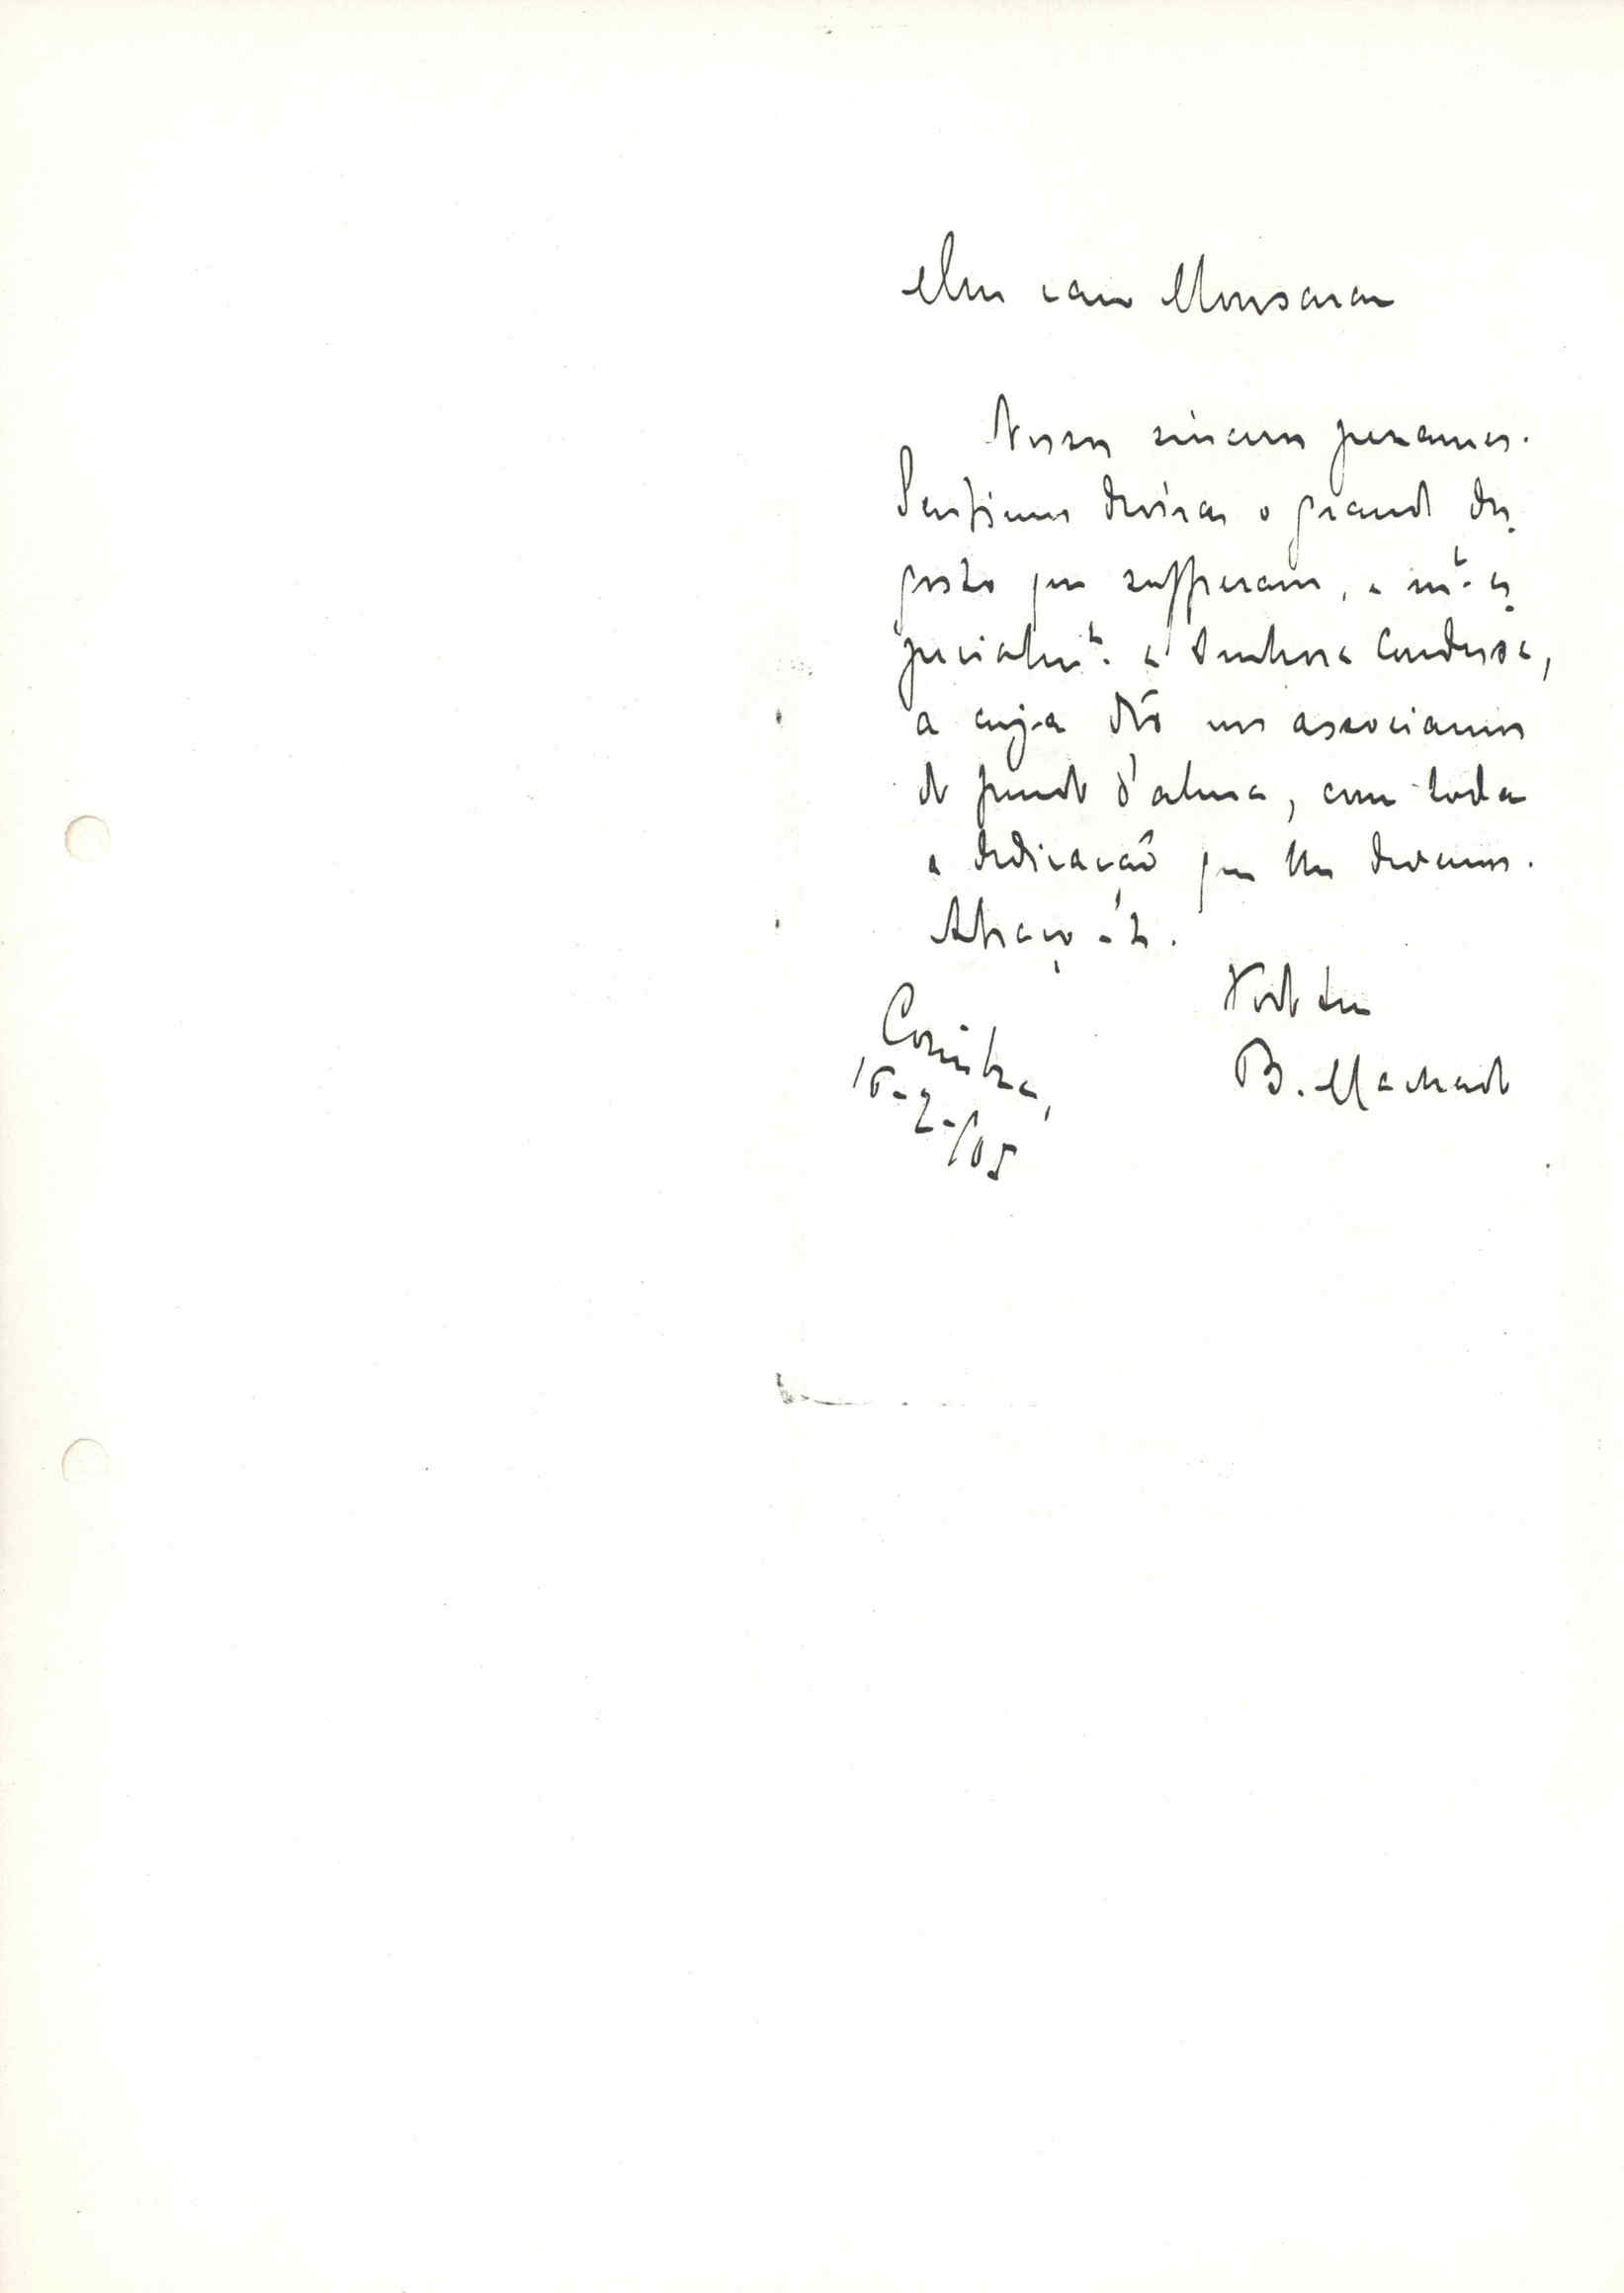 Meu caro Monsaraz
Nossos sinceros pezames.
Sentimos devéras o grande des
gosto que soffreram, e m.to es
pecialm.te a Senhora Condessa,
a cuja dôr nos associamos
do fundo d'alma, com toda
a dedicação que lhes devemos.
Abraço-o.
Todo seu
B. Machado
Coimbra,
16-2-905